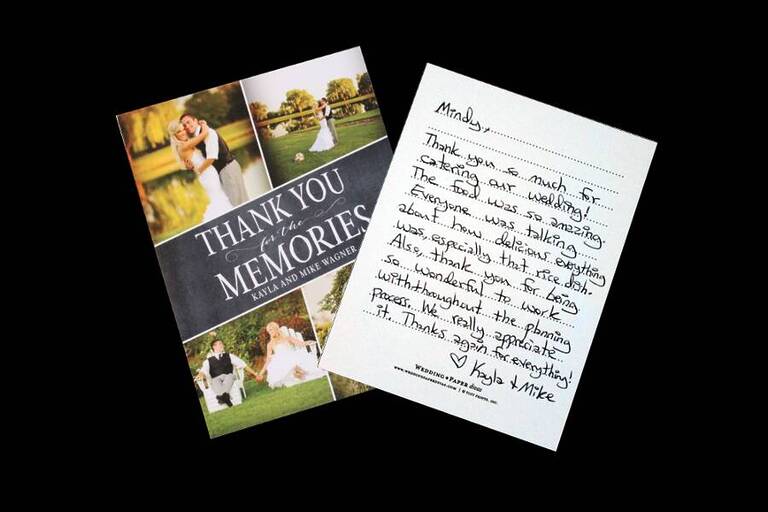 THANK YOU
for the
MEMORIES
KAYLA AND MIKE WAGNER
Mindy,
Thank you so much for
catering our wedding!
The food was so amazing.
Everyone was talking
about how delicious everything
was, especially that rice dish.
Also, thank you for being
so wonderful to work
with throughout the planning
process. We really appreciate
it. Thanks again for everything!
♡ Kayla & Mike
WEDDING PAPER divas